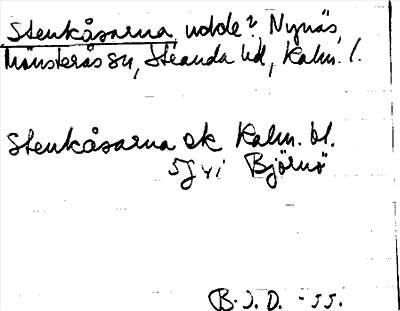 Stenkåsarna, udde?, Nynäs,
Mönsterås sn, Stranda hd, Kalm. l.
Stenkåsarna ek Kalm. bl.
5G vi Björnö
B.J.D. -55.